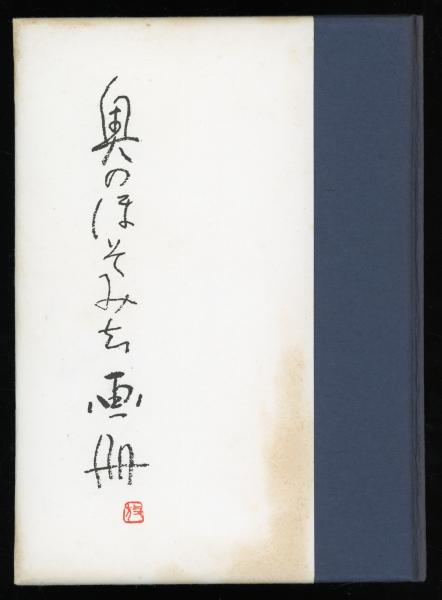 奥のほそみち画冊